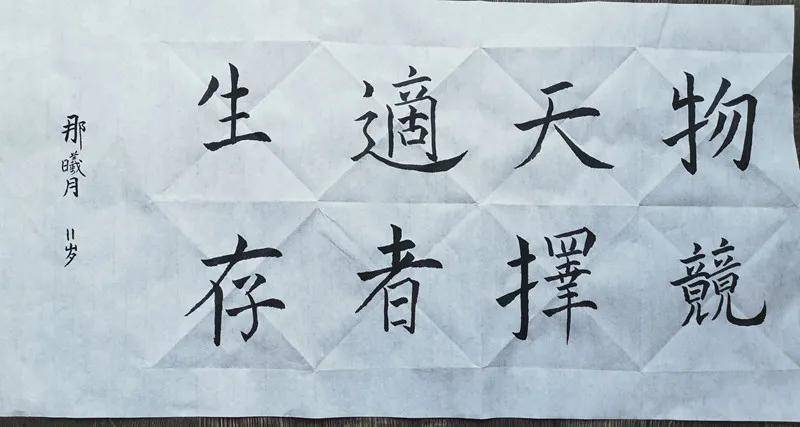 物競
天擇
適者
生存
那曦月 11岁